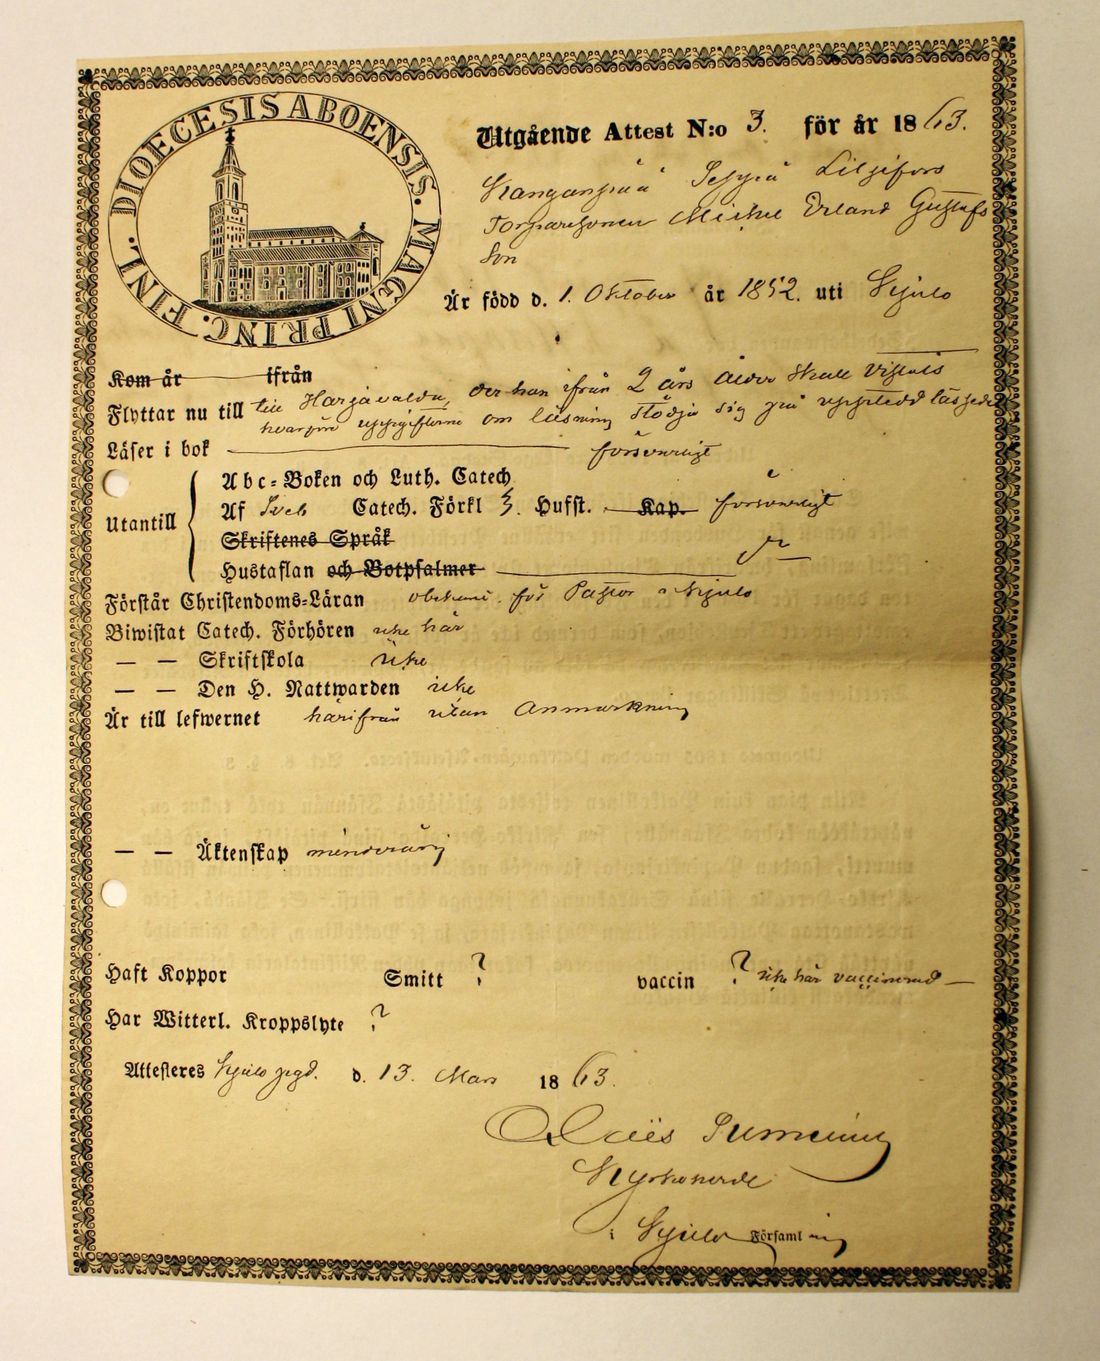 DIOECESIS ABOENSIS. MAGNI PRINC. FINL.
Utgående Attest N:o 3. för år 1863.
Liljefors
Torparesonen Michel Erland Gustafs
Son
Är född d. 1. Oktober år 1852. uti Kjulo
Kom år ifrån
Flyttar nu till till Harjavalda, der han ifrån 2 års ålder skall vistats
hvarföre uppgifterne om läsning stödja sig på
Läser i bok försvarligt
Utantill
Abc-Boken och Luth. Catech
Af Sveb Catech. Förkl 3. Hufst. Kap. försvarligt
Skriftenes Språk
Hustaflan och Botpsalmer
Förstår Christendoms-Läran obekant för Pastor i Kjulo
Biwistat Catech. Förhören icke här
— — Skriftskola icke
— — Den H. Nattwarden icke
Är till lefwernet härifrån utan Anmärkning
— — Äktenskap minderårig
Haft Koppor Smitt ? vaccin ? icke här vaccinerad —
Har Witterl. Kroppslyte ?
Attesteres Kjulo pgd. d. 13. Mars 1863.
Kyrkoherde
i Kjulo Församling